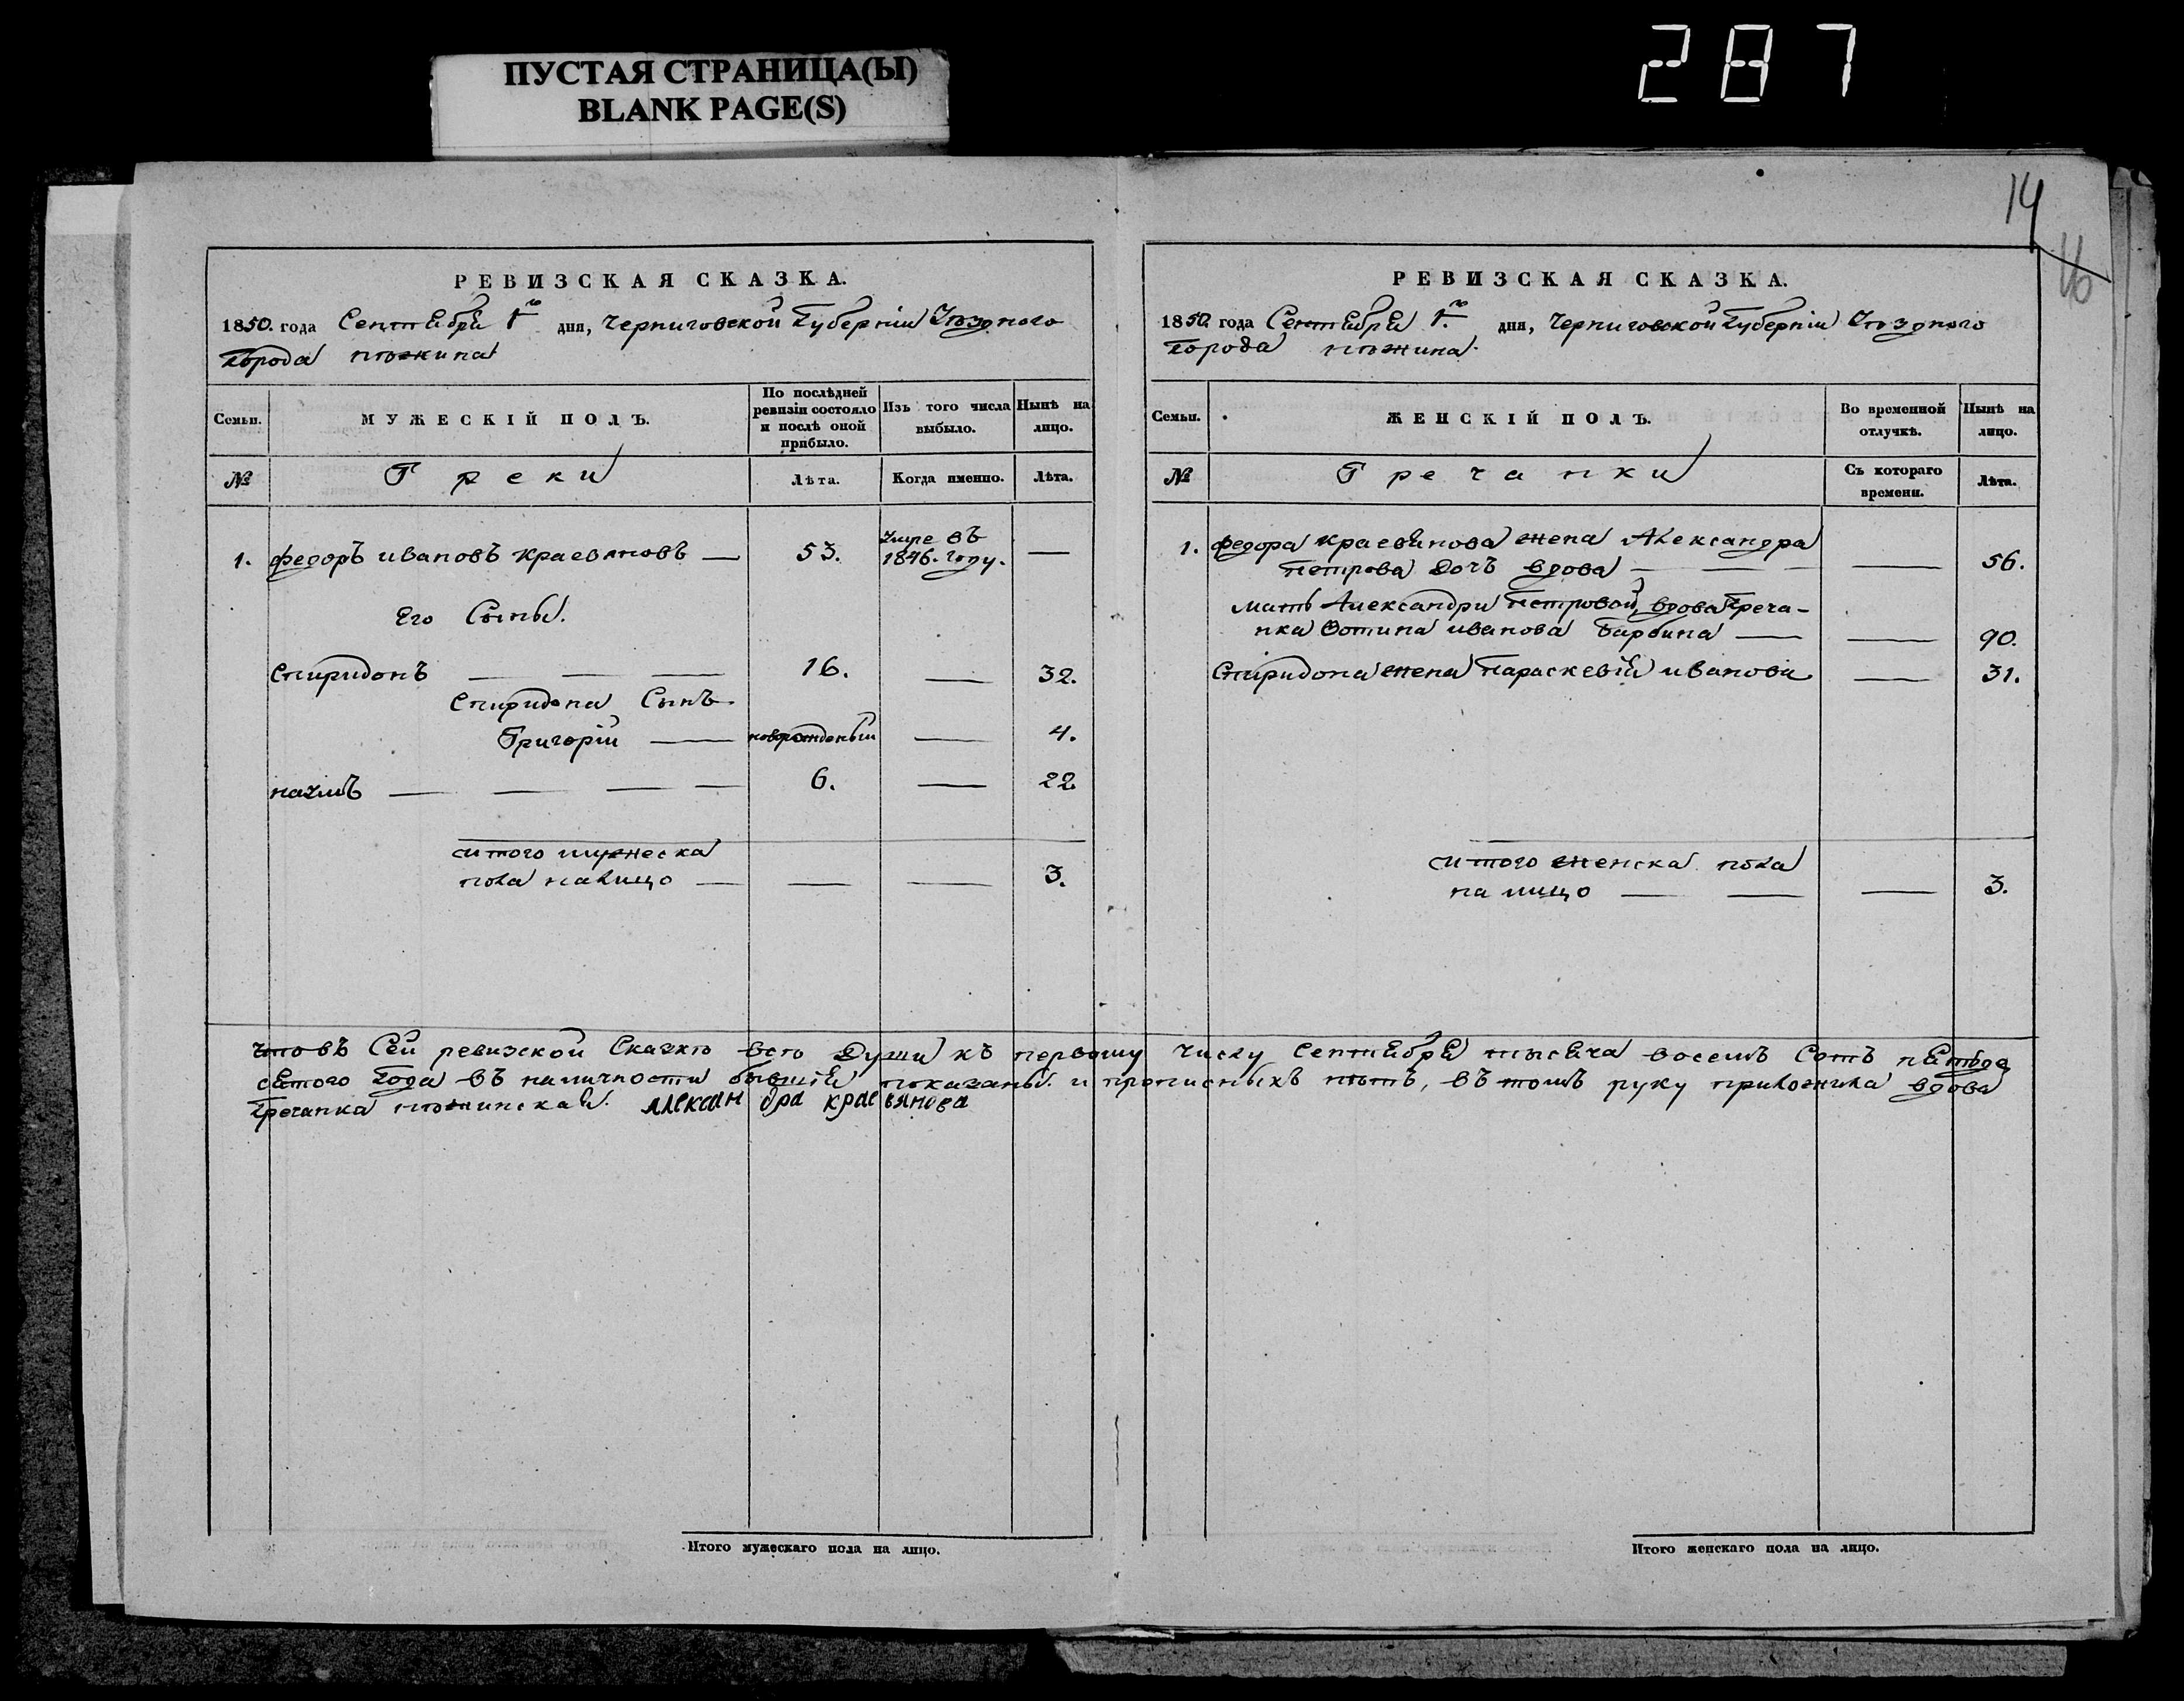 ПУСТАЯ СТРАНИЦА(Ы)
BLANK PAGE(S)
287
14
16
РЕВИЗСКАЯ СКАЗКА.
1850. года Сентября 1го дня, Черниговской Губерніи Уѣзднаго
Города Нѣжина
Семьи.
МУЖЕСКІЙ ПОЛЪ.
По послѣдней ревизіи состояло и послѣ оной прибыло.
Изъ того числа выбыло.
Нынѣ на лицо.
№
Греки
Лѣта.
Когда именно.
Лѣта.
1. Федоръ Ивановъ Краевяновъ — 53. Умре въ 1846. году. —
Его Сыны.
Спиридонъ — — — 16. — 32.
Спиридона Сынъ
Григорій — новорожденый — 4.
Наумъ — — — — 6. — 22
Итого мужеска
пола налицо — — — 3.
РЕВИЗСКАЯ СКАЗКА.
1850 года Сентября 1.го дня, Черниговской Губерніи Уѣзднаго
Города Нѣжина.
Семьи.
ЖЕНСКІЙ ПОЛЪ.
Во временной отлучкѣ.
Нынѣ на лицо.
№
Гречанки
Съ котораго времени.
Лѣта.
1. Федора Краевянова жена Александра
Петрова Дочъ вдова — — — — 56.
Мать Александри Петровой, вдова Греча-
нка Фотина Иванова Барбина — — 90.
Спиридона жена Параскевія Иванова — 31.
Итого женска пола
на лицо — — — 3.
Что въ Сей ревизской Сказкѣ всѣ Души къ первому числу Сентября тысяча восемъ Сотъ пятьде
сятого Года въ наличности бывшія показаны и прописныхъ нѣтъ, въ томъ руку приложила вдова
Гречанка Нѣжинская. Александра Краевянова
Итого мужескаго пола на лицо.
Итого женскаго пола на лицо.